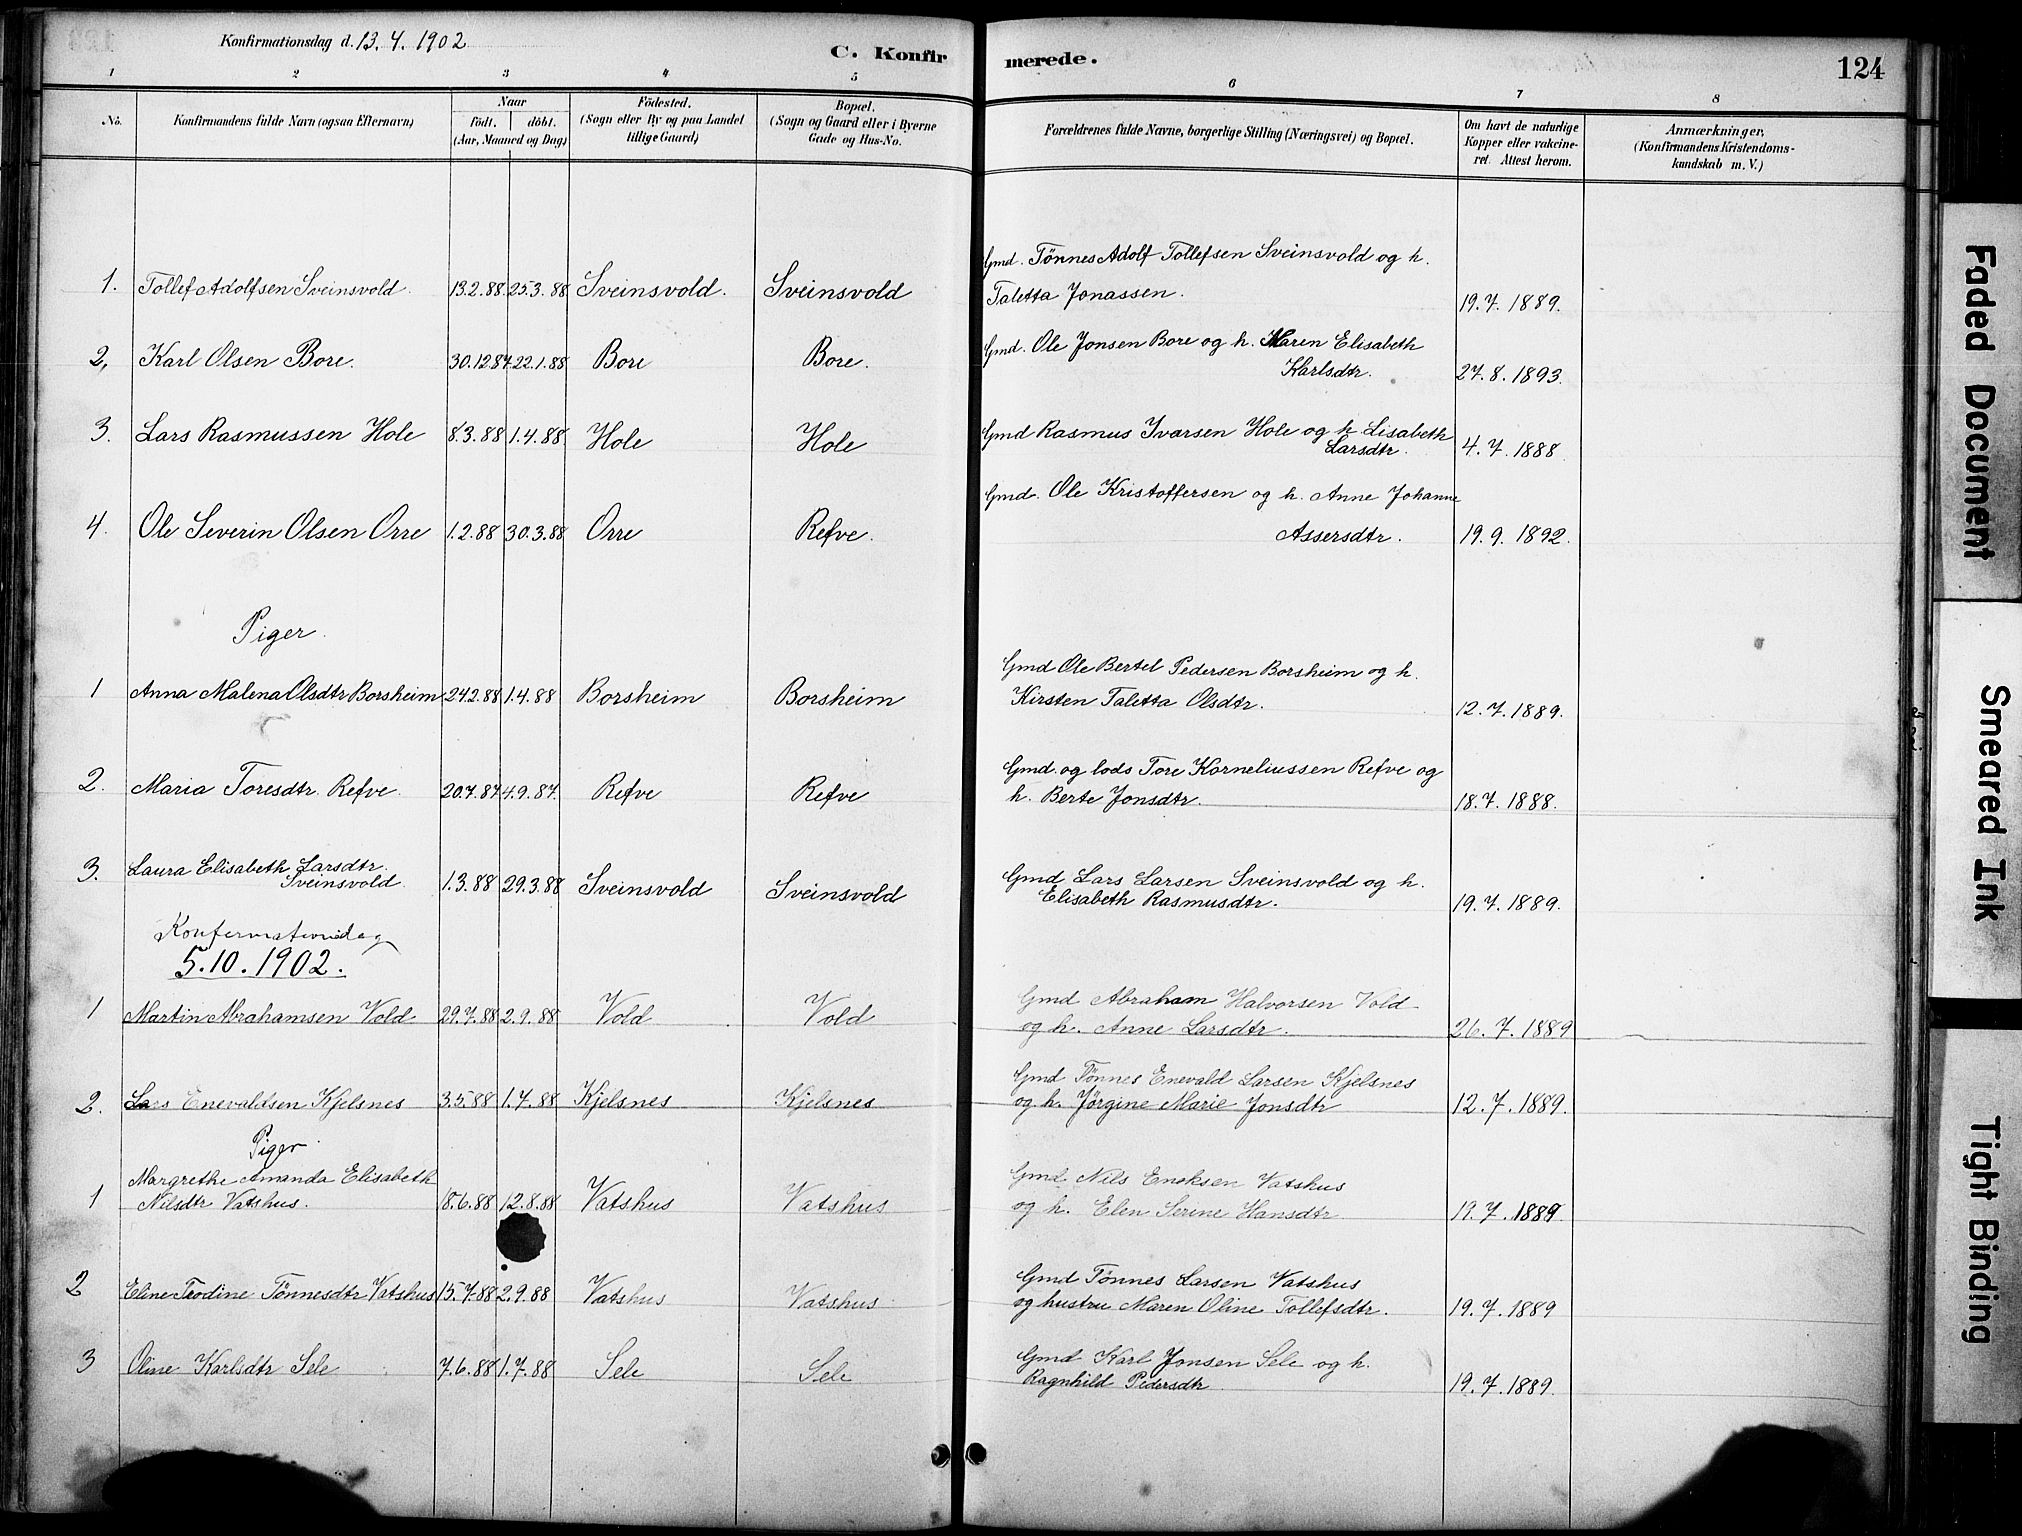 Konfirmationsdag d. 13.4.1902
C. Konfirmerede.
124
1 2 3 4 5 6 7 8
No. Konfirmandens fulde Navn (ogsaa Efternavn)
Naar
født. døbt.
(Aar, Maaned og Dag)
Fødested.
(Sogn eller By og paa Landet
tillige Gaard)
Bopæl.
(Sogn og Gaard eller i Byerne
Gade og Hus-No.
Forældrenes fulde Navne, borgerlige Stilling (Næringsvei) og Bopæl.
Om havt de naturlige
Kopper eller vakcine-
ret. Attest herom.
Anmærkninger.
(Konfirmandens Kristendoms-
kundskab m. V.)
Gmd. Tönnes Adolf Tollefsen Sveinsvold og h.
1. Tollef Adolfsen Sveinsvold 13.2.88 25.3.88 Sveinsvold. Sveinsvold Taletta Jonassen. 19.7.1889.
Gmd. Ole Jonsen Bore og h. Maren Elisabeth
2, Karl Olsen Bore. 30.12.87 22.1.88 Bore Bore. Karlsdtr. 27.8.1893.
3. Lars Rasmussen Hole 8.3.88 1.4.88 Hole Hole Gmd Rasmus Ivarsen Hole og h Lisabeth
Larsdtr. 4.7.1888
Gmd. Ole Kristoffersen og h. Anne Johanne
4. Ole Severin Olsen Orre 1.2.88 30.3.88 Orre Refve. Assersdtr. 19.9.1892.
Piger.
Gmd Ole Bertel Pedersen Borsheim og h.
1 Anna Malena Olsdtr Borsheim 24.2.88 1.4.88 Borsheim Borsheim Kirsten Taletta Olsdtr. 12.7.1889.
Gmd. og lods Tore Korneliussen Refve og
2. Maria Toresdtr. Refve. 20.7.87 4.9.87. Refve Refve h. Berte Jonsdtr. 18.7.1888.
3. Laura Elisabeth Larsdtr. Gmd Lars Larsen Sveinsvold og h.
Sveinsvold 1.3.88 29.3.88 Sveinsvold Sveinsvold Elisabeth Rasmusdtr. 19.7.1889.
Konfermationsdag
5.10.1902.
Gmd Abraham Halvorsen Vold
1 Martin Abrahamsen Vold 29.7.88 2.9.88 Vold Vold og h. Anne Larsdtr. 26.7.1889
Gmd Tönnes Enevald Larsen Kjelsnes
2. Lars Enevaldsen Kjelsnes 3.5.88 1.7.88 Kjelsnes Kjelsnes og h. Jørgine Marie Jonsdtr 12.7.1889.
Piger
Margrethe Amanda Elisabeth Gmd Nils Enoksen Vatshus
1 Nilsdtr Vatshus. 18.6.88 12.8.88 Vatshus Vatshus og h. Elen Serine Hansdtr 19.7.1889
Gmd Tönnes Larsen Vatshus
2 Eline Todine Tönnesdtr Vatshus 15.7.88 2.9.88 Vatshus Vatshus og hustru Maren Oline Tollefsdtr. 19.7.1889
Gmd Karl Jonsen Sele og h.
3 Oline Karlsdtr Sele 7.6.88 1.7.88 Sele Sele Ragnhild Pedersdtr 19.7.1889.
Faded Document
Smeared Ink
Tight Binding